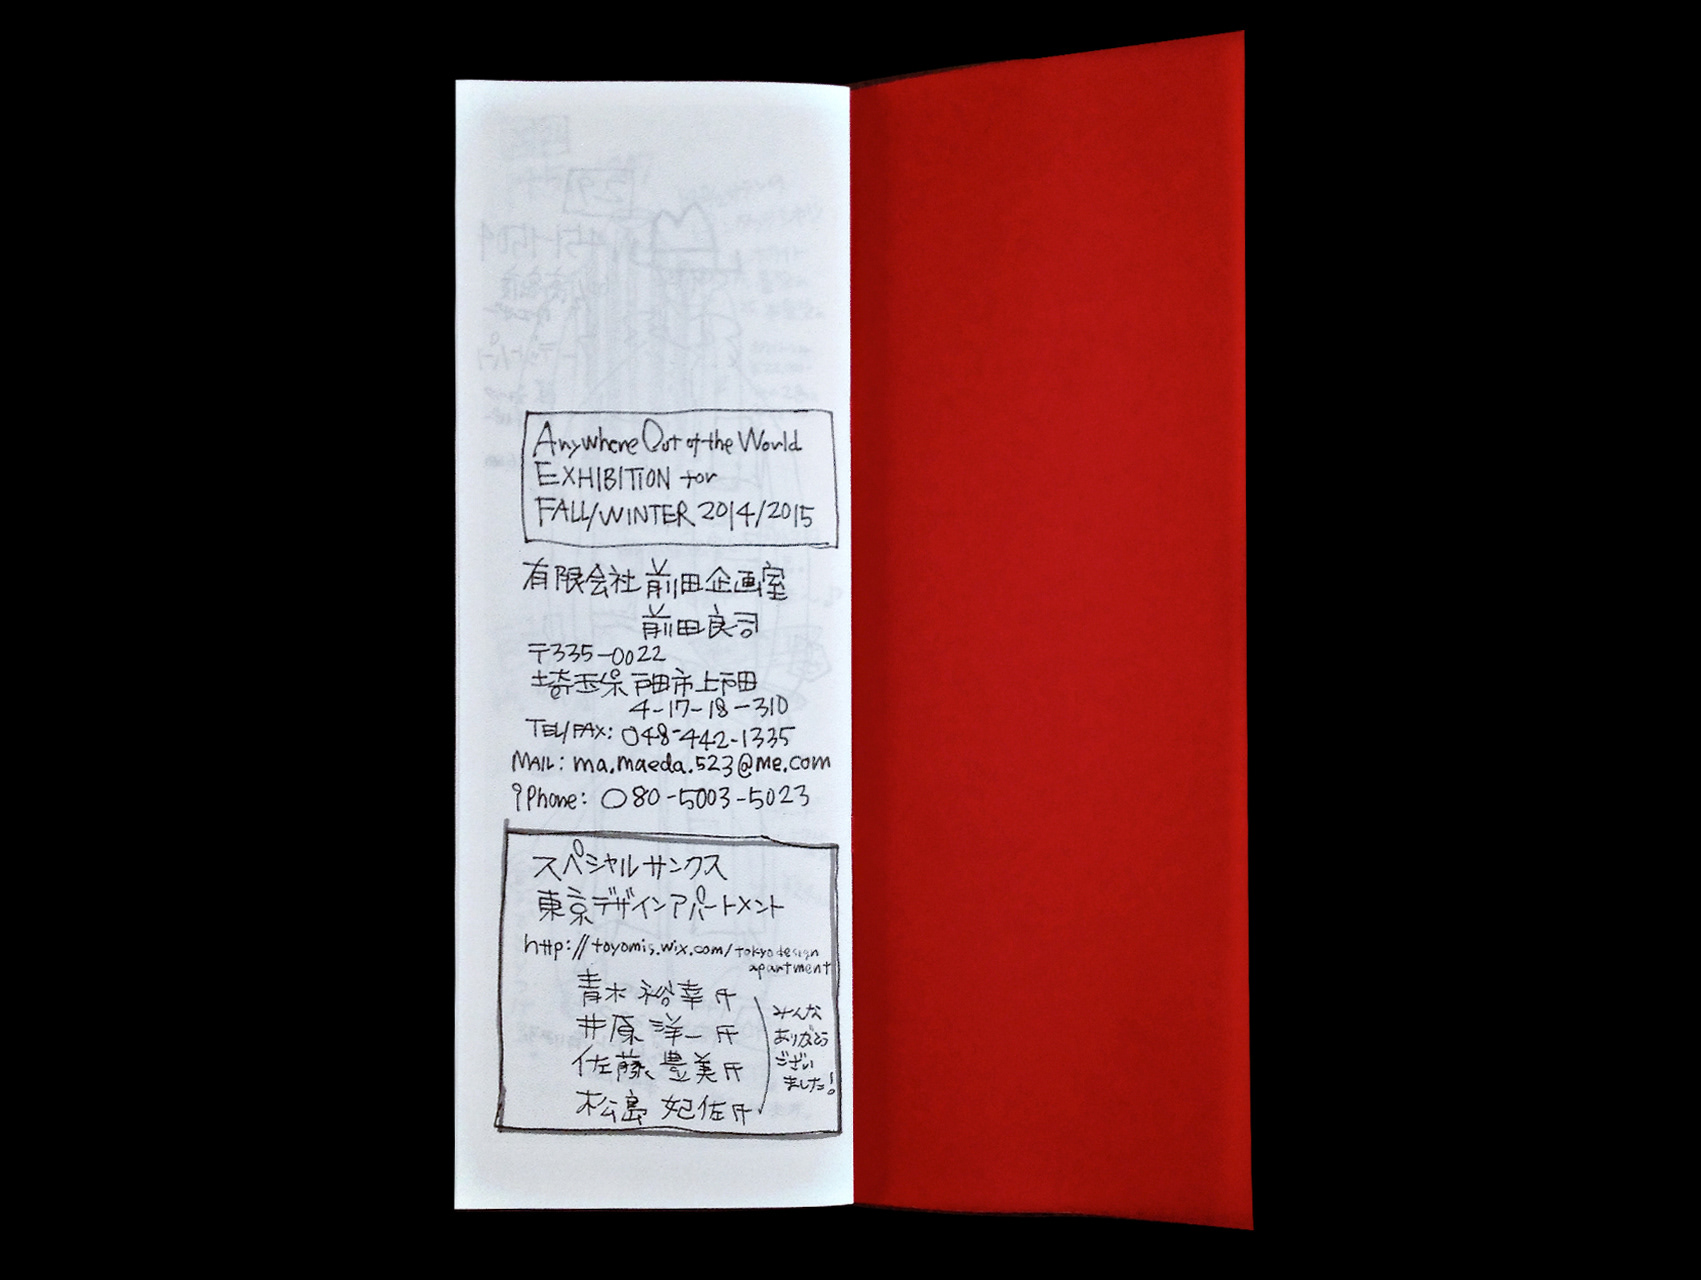 Anywhere Out of the World
EXHIBITION for
FALL/WINTER 2014/2015
有限会社 前田企画室
前田良司
〒335-0022
埼玉県 戸田市上戸田
4-17-18-310
TEL/FAX: 048-442-1335
MAIL: ma.maeda.523@me.com
iPhone: 080-5003-5023
スペシャルサンクス
東京デザインアパートメント
http://toyomis.wix.com/tokyodesign
apartment
青木 裕幸氏
井原 洋一氏
佐藤 豊美氏
松島 妃佐氏
みんな
ありがとう
ござい
ました!